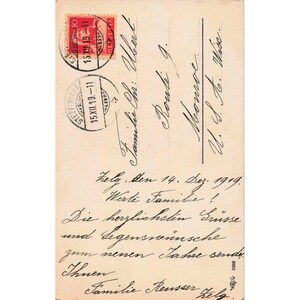 15.XII.19.-11
15.XII.19.-11
Familie Chr. Abert
Route 9.
Monroe
U. S. A. Wis.
Zelg, den 14. Dez. 1919.
Werte Familie!
Die herzlichsten Grüsse
und Segenswünsche
zum neuen Jahre sendet
Ihnen
Familie Reusser
Zelg